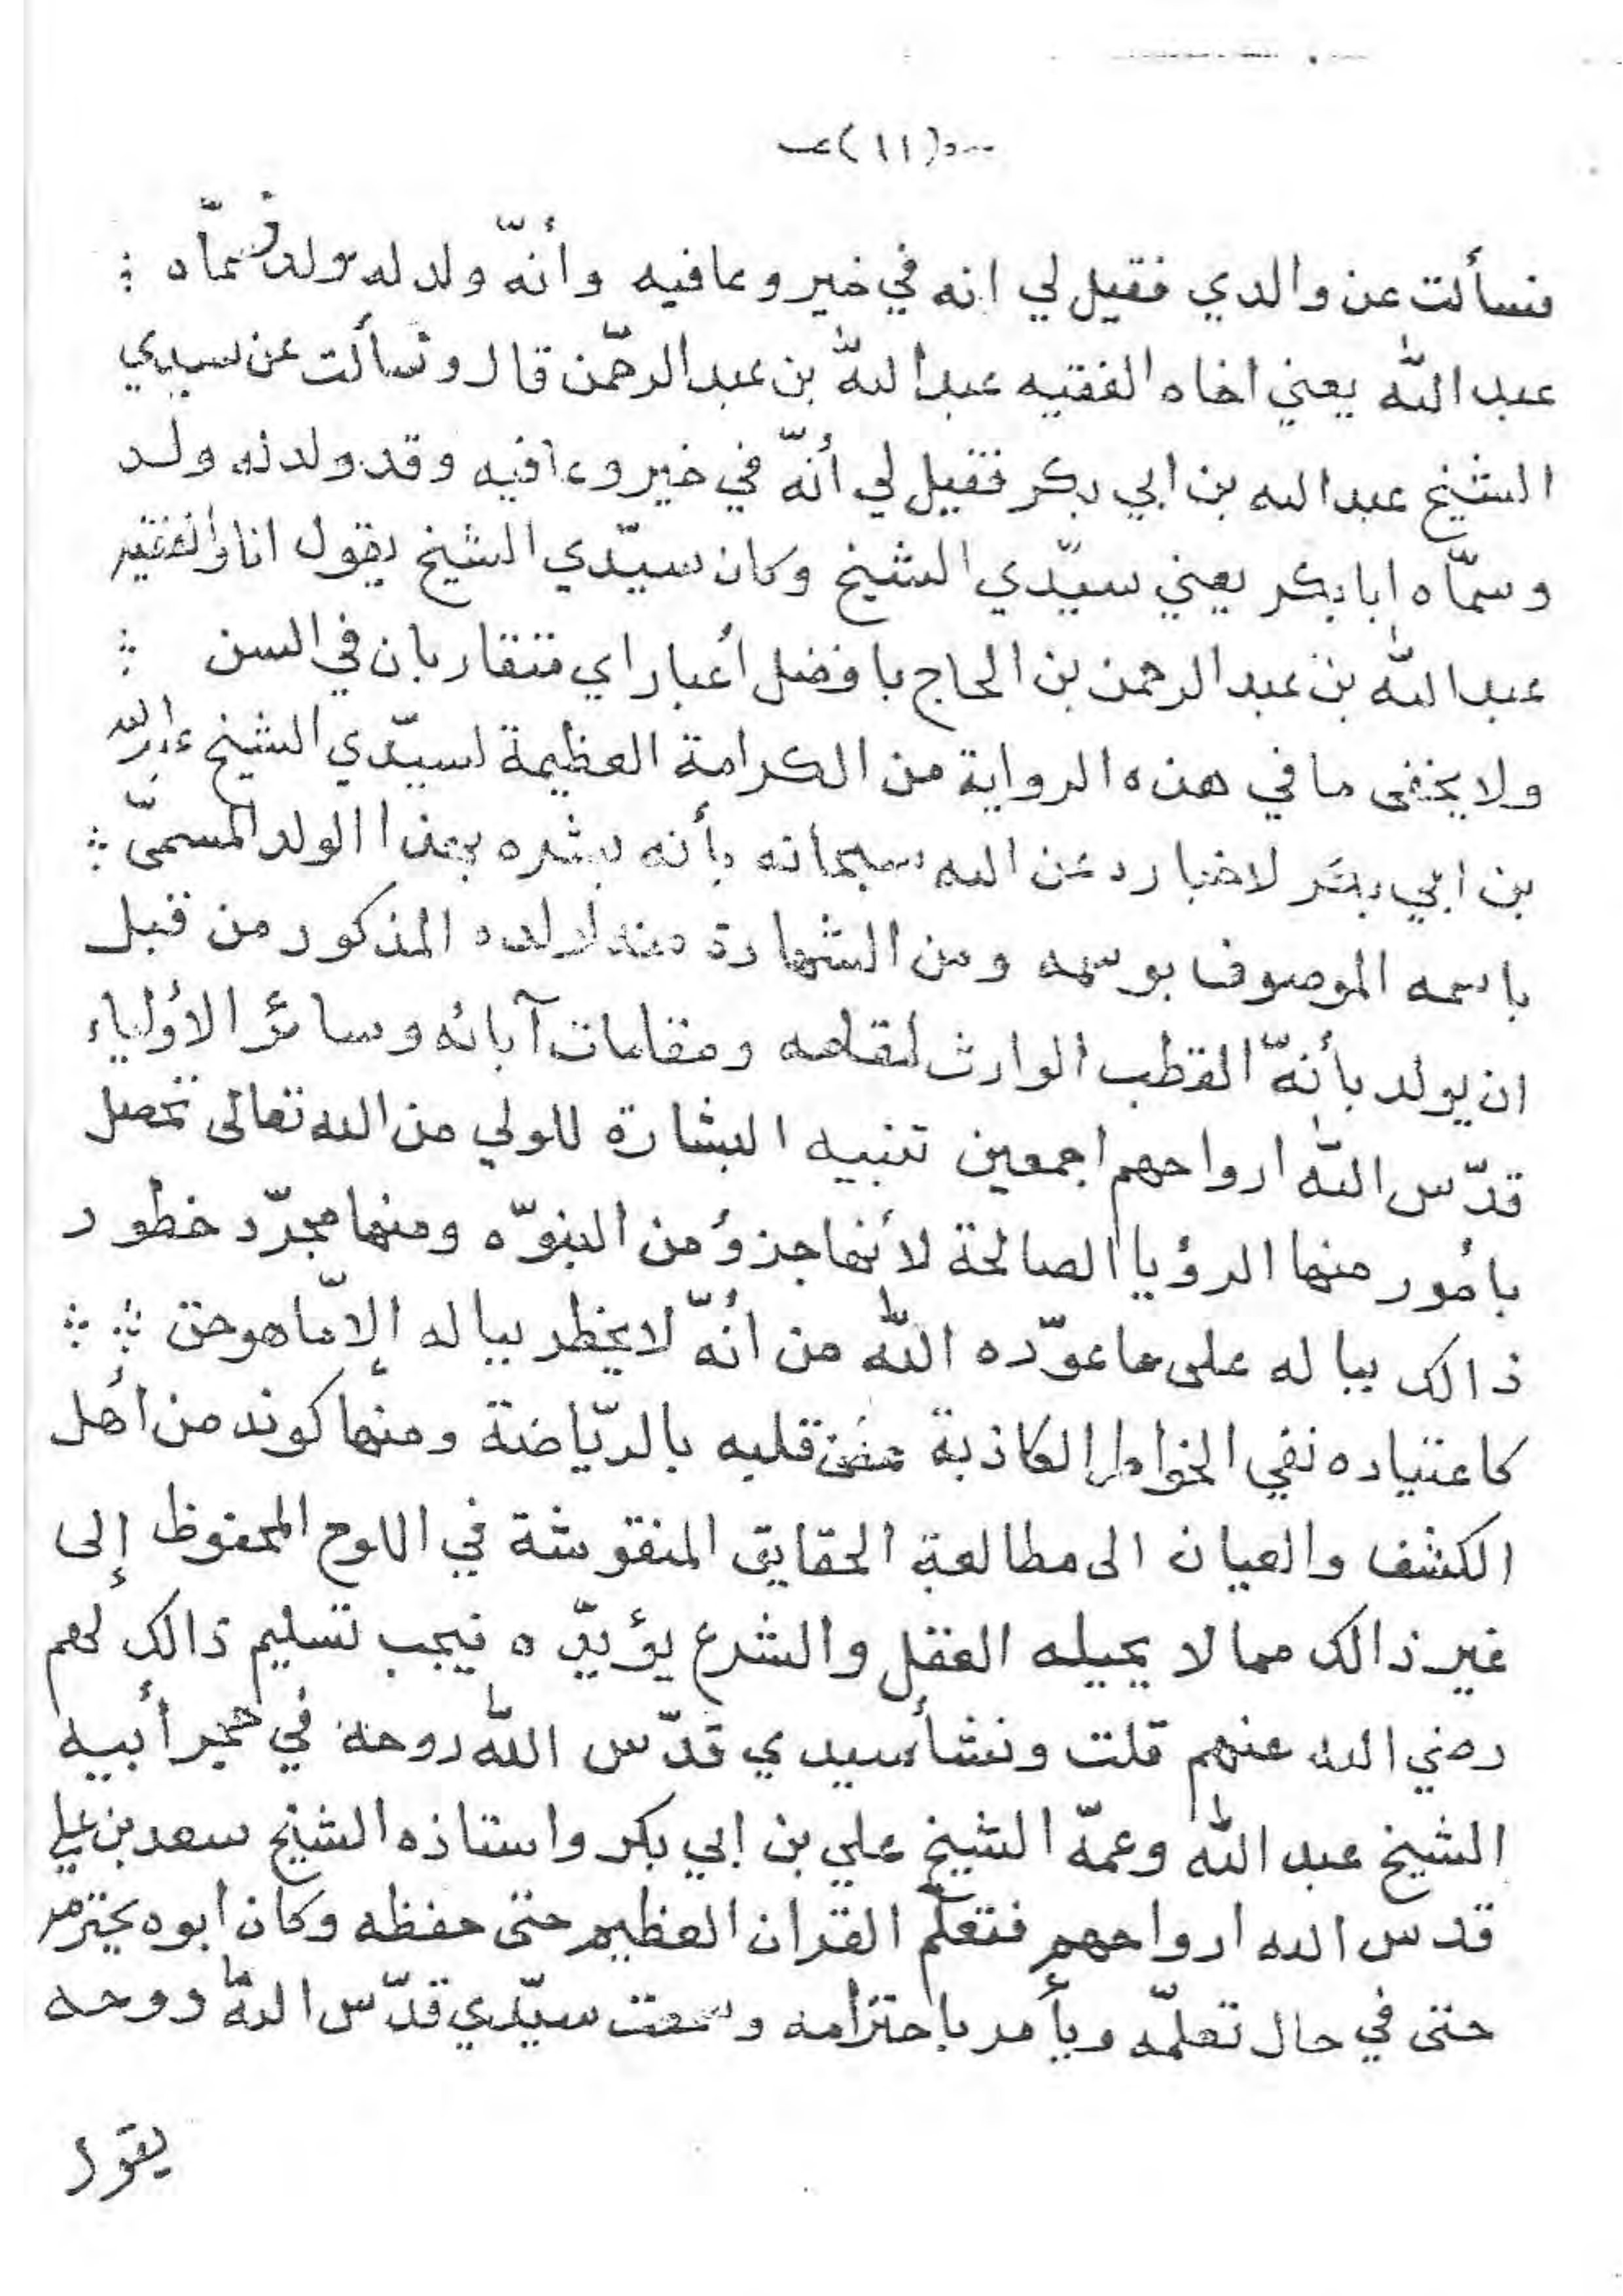 (١١)
فسألت عن والدي فقيل لي انه في خير وعافيه وأنّه ولد له ولد وسمّاه
عبد الله يعني اخاه الفقيه عبد الله بن عبد الرحمّن قال وسألت عن سيدي
الشيخ عبد الله بن ابي بكر فقيل لي أنّه في خير وعافيه وقد ولد له ولد
وسمّاه ابا بكر يعني سيّدي الشيخ وكان سيّدي الشيخ يقول انا والفقيه
عبد الله بن عبد الرحمن بن الحاج بافضل أعبار اي متقاربان في السن
ولا يخفى ما في هذه الرواية من الكرامة العظيمة لسيّدي الشيخ عبد الله
بن ابي بكر لاخباره عن الله سبحانه بأنه بشره بهذا الولد المسمّى
باسمه الموصوف بوسمه ومن الشهادة منه المذكور من قبل
ان يولد بأنّه القطب الوارث لمقامه ومقامات آبائه وسائر الأولياء
قدّس الله ارواحهم اجمعين تنبيه البشارة للولي من الله تعالى تحصل
بأمور منها الرؤيا الصالحة لأنها جزؤ من النبوّه ومنها مجرّد خطور
ذالك بباله على ما عوّده الله من أنّه لا يخطر بباله إلاّ ما هو حق
كاعتياده نفي الخواطر الكاذبة عن قلبه بالريّاضة ومنها كونه من أهل
الكشف والعيان الى مطالعة الحقايق المنقوشة في اللوح المحفوظ إلى
غير ذالك مما لا يحيله العقل والشرع يؤيّده فيجب تسليم ذالك لهم
رضي الله عنهم قلت ونشأ سيدي قدّس الله روحه في حجر أبيه
الشيخ عبد الله وعمّه الشيخ علي بن ابي بكر واستاذه الشيخ سعد بن علي
قدس الله ارواحهم فتعلّم القران العظيم حتى حفظه وكان ابوه يحترمه
حتى في حال تعلمّه ويأمر باحترامه وسمعت سيّدي قدّس اللهّ روحه
يقول